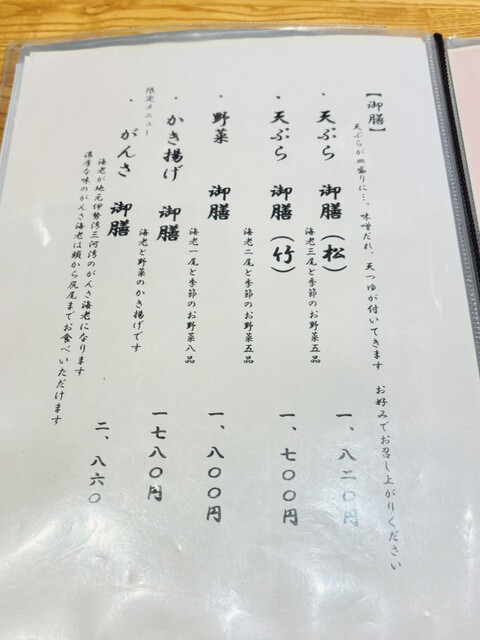 【御膳】
天ぷらが皿盛りに…。味噌だれ、天つゆが付いてきます　お好みでお召し上がりください
・天ぷら　御膳（松）　一、八二〇円
海老三尾と季節のお野菜五品
・天ぷら　御膳（竹）　一、七〇〇円
海老二尾と季節のお野菜五品
・野菜　御膳　一、八〇〇円
海老一尾と季節のお野菜八品
・かき揚げ　御膳　一七八〇円
海老と野菜のかき揚げです
限定メニュー
・がんさ　御膳　二、八六〇
海老が地元伊勢湾三河湾のがんさ海老になります
濃厚な味のがんさ海老は頭から尻尾までお食べいただけます